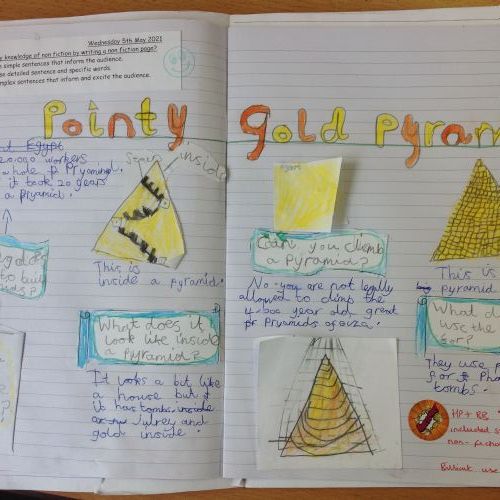 Wednesday 5th May 2021
knowledge of non fiction by writing a non fiction page?
simple sentences that inform the audience.
detailed sentence and specific words.
complex sentences that inform and excite the audience.
Pointy gold Pyram
Egypt
20,000 workers
a whole
it took 20 years
a pryamid.
to bui
Stairs
inside
This is
inside a pyramid.
What does it
look like inside
a pyramid?
It looks a bit like
a house but
it has tombs,
and
gold inside.
Can you climb
a Pyramid?
No. you are not legally
allowed to climb the
year old great
Pryamids of Giza.
This is
pyramid
What d
use the
for?
They use
for Pha
tombs.
HP + RR
included
non-fictio
use